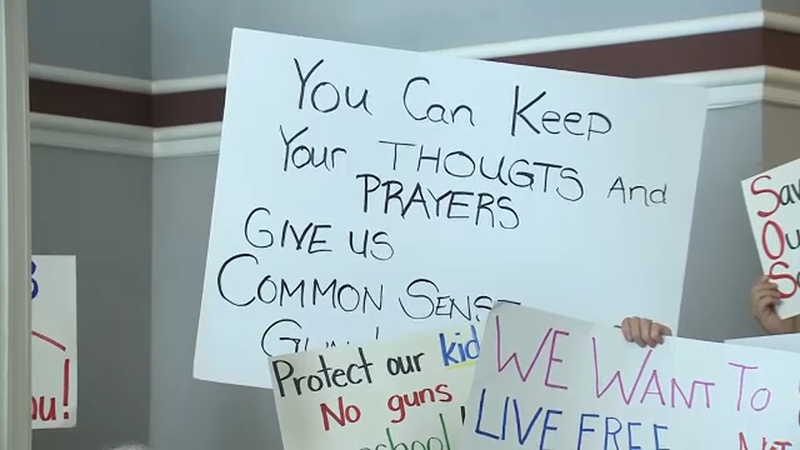 You Can Keep
Your THOUGTS And
PRAYERS
GIVE US
COMMON SENSE
Protect our kid
No guns
school!
WE WANT TO
LIVE FREE
Sav
Ou
Sc
u!